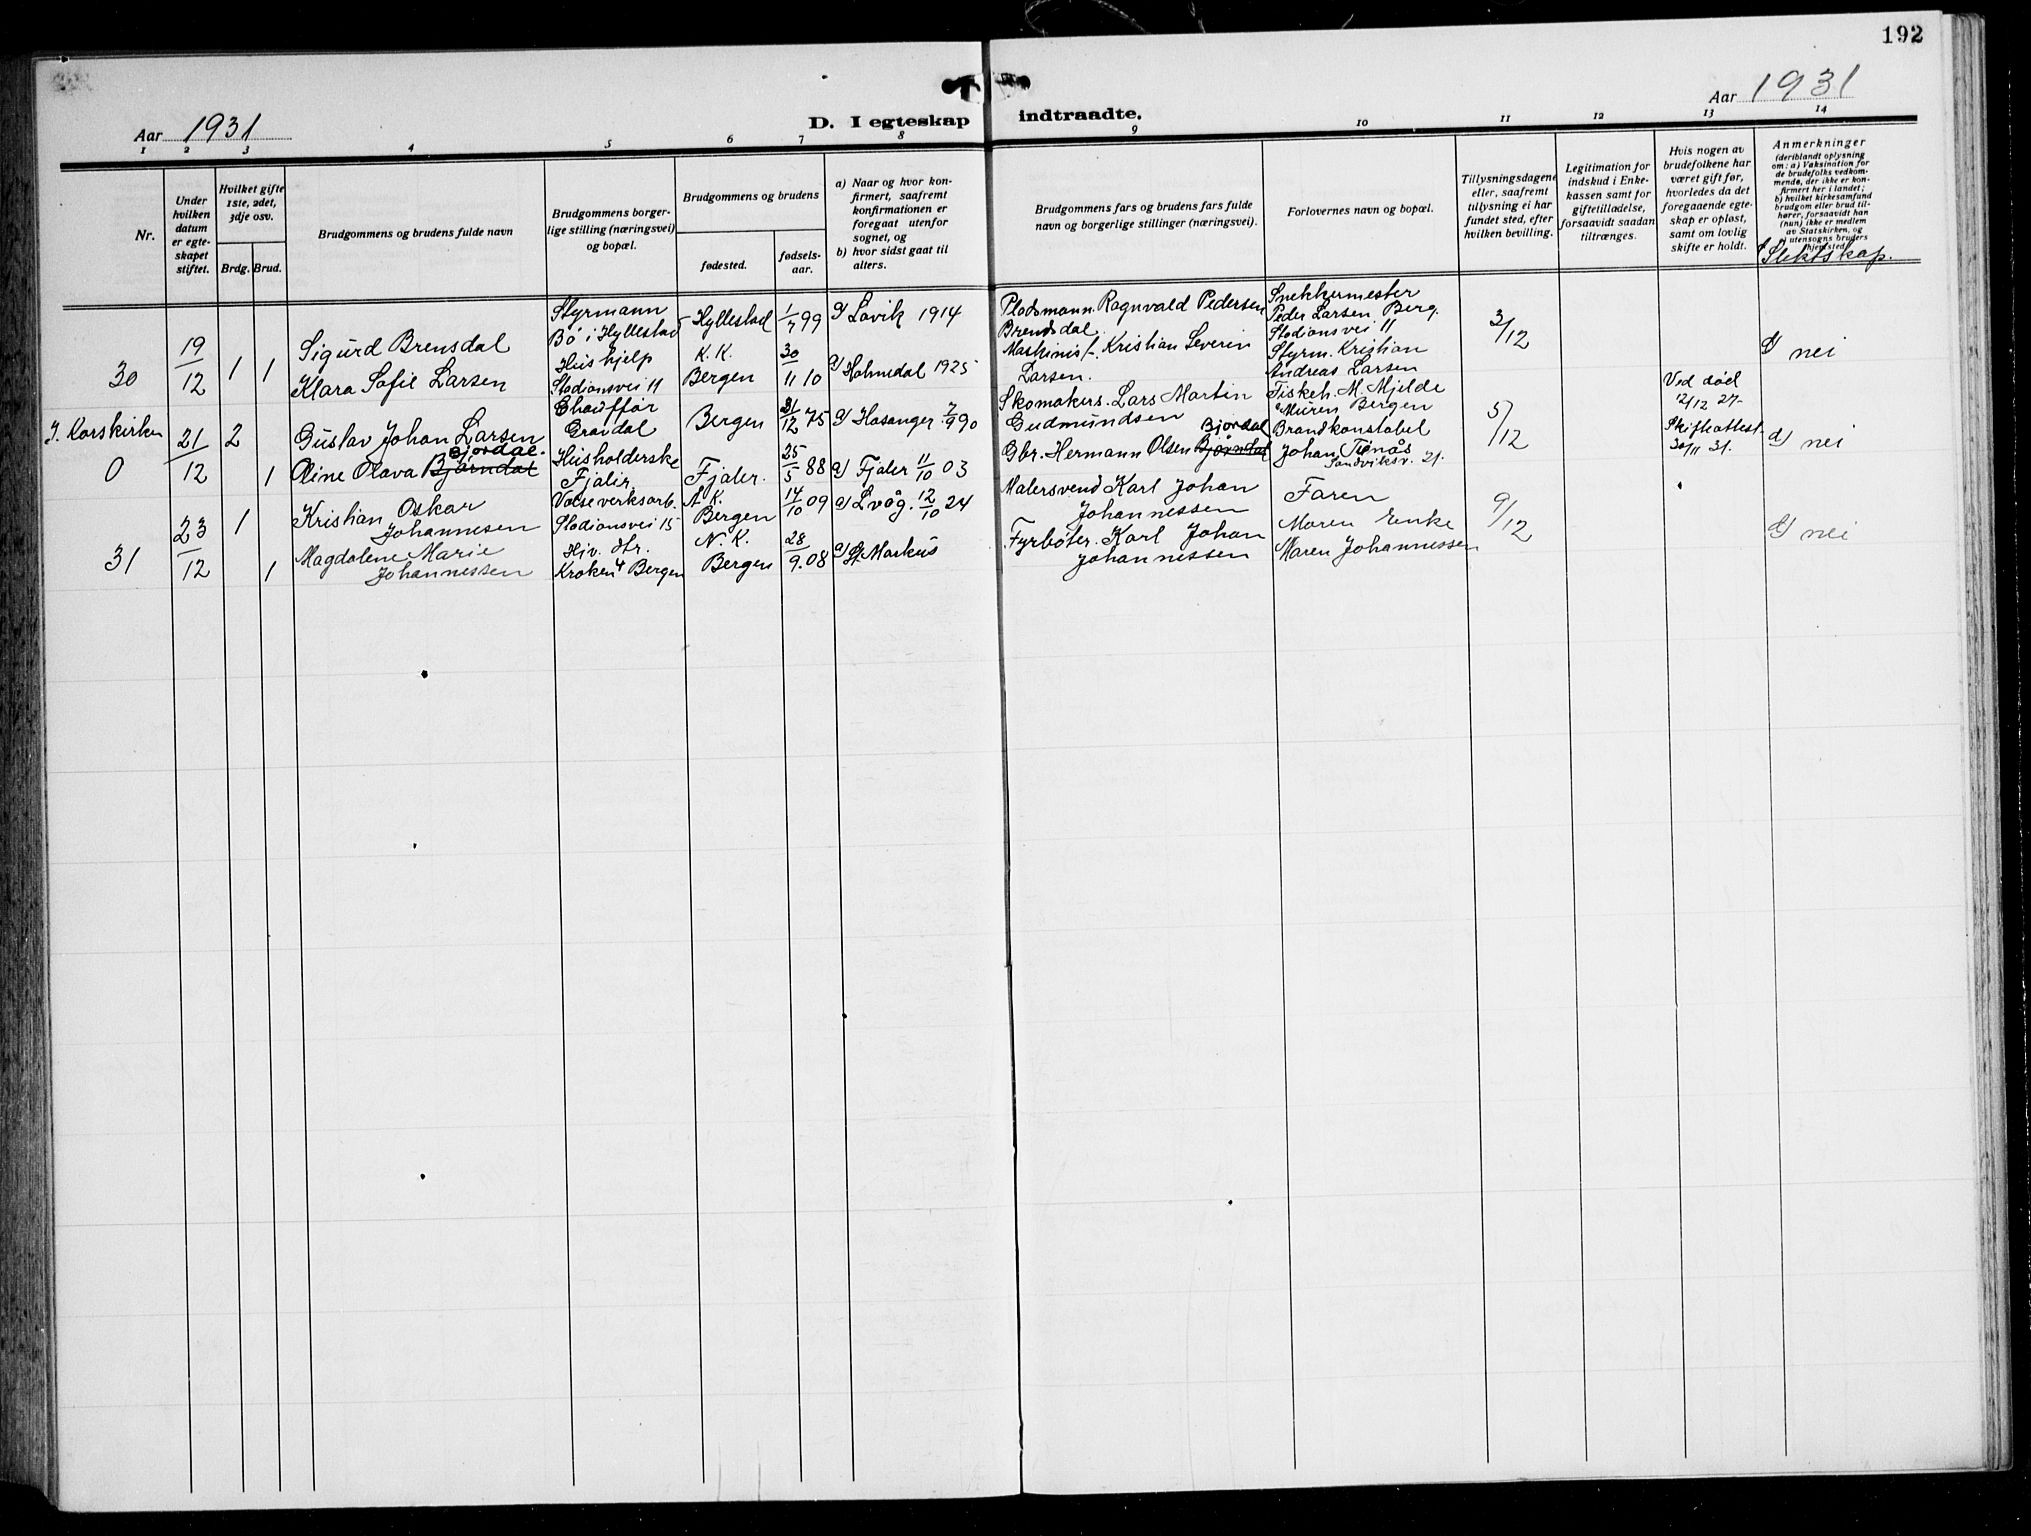 192
Aar 1931
D. I egteskap indtraadte.
Aar 1931
1 2 3 4 5 6 7 8 9 10 11 12 13 14
Nr.
Under hvilken datum er egteskapet stiftet.
Hvilket gifte 1ste, 2det, 3dje osv.
Brdg. Brud.
Brudgommens og brudens fulde navn
Brudgommens borgerlige stilling (næringsvei) og bopæl.
Brudgommens og brudens
fødested.
fødselsaar.
a) Naar og hvor konfirmert, saafremt konfirmationen er foregaat utenfor sognet, og
b) hvor sidst gaat til alters.
Brudgommens fars og brudens fars fulde navn og borgerlige stillinger (næringsvei).
Forlovernes navn og bopæl.
Tillysningsdagene eller, saafremt tillysning ei har fundet sted, efter hvilken bevilling.
Legitimation for indskud i Enkekassen samt for giftetilladelse, forsaavidt saadan tiltrænges.
Hvis nogen av brudefolkene har været gift før, hvorledes da det foregaaende egteskap er opløst, samt om lovlig skifte er holdt.
Anmerkninger
(deriblandt oplysning om: a) Vaksination for de brudefolks vedkommende, der ikke er konfirmert her i landet; b) hvilket kirkesamfund brudgom eller brud tilhører, forsaavidt han (hun) ikke er medlem av Statskirken, og c) utensogns bruders hjemsted.
d) Slektskap.
30
19/12
1 1
Sigurd Brensdal
Styrmann
Bö i Hyllestad
Hyllestad
1/7 99
a) Lavik 1914
Plodsmann. Ragnvald Pedersen
Brensdal
Snekkermester
Peder Larsen Berg.
Stadionsvei 11
3/12
d) nei
Klara Sofie Larsen
Hushjelp
Stadionsvei 11
K. K.
Bergen
30/11 10
a) Holmedal 1925
Maskinist. Kristian Severin
Larsen.
Styrm. Kristian
Andreas Larsen
J. Korskirken
0
21/12
2
Gustav Johan Larsen
Chaufför
Gravdal
Bergen
31/12 75
a) Hosanger 7/9 90
Skomakers. Lars Martin
Gudmundsen
Fiskeh. M. Mjelde
Muren Bergen
5/12
Ved död
12/12 27.
Skifteattest
30/11 31.
d) nei
1
Oline Olava Bjørndal Bjordal.
Husholderske
Fjaler
Fjaler.
25/5 88
a) Fjaler 11/10 03
Gbr. Hermann Olsen Bjørndal Bjordal
Brandkonstabel
Johan Tienås
Sandviksv. 21.
31
23/12
1
Kristian Oskar
Johannesen
Valseverksarb.
Stadionsvei 15
A. K.
Bergen
14/10 09
a) Lvåg. 12/10 24
Malersvend Karl Johan
Johannessen
Faren
9/12
d) nei
1
Magdalene Marie
Johannessen
Hjv. dtr.
Kroken 4 Bergen
N. K.
Bergen
28/9. 08
a) St. Markus
Fyrböter. Karl Johan
Johannessen
Moren Enke
Maren Johannessen